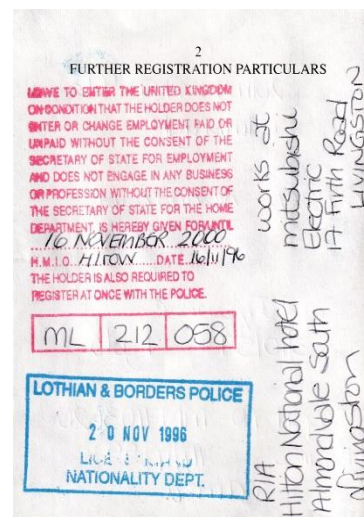 2
FURTHER REGISTRATION PARTICULARS
LEAVE TO ENTER THE UNITED KINGDOM
ON CONDITION THAT THE HOLDER DOES NOT
ENTER OR CHANGE EMPLOYMENT PAID OR
UNPAID WITHOUT THE CONSENT OF THE
SECRETARY OF STATE FOR EMPLOYMENT
AND DOES NOT ENGAGE IN ANY BUSINESS
OR PROFESSION WITHOUT THE CONSENT OF
THE SECRETARY OF STATE FOR THE HOME
DEPARTMENT, IS HEREBY GIVEN FOR/UNTIL
16 NOVEMBER 2000
H.M.I.O. HITOW DATE 16/11/96
THE HOLDER IS ALSO REQUIRED TO
REGISTER AT ONCE WITH THE POLICE.
ML 212 058
LOTHIAN & BORDERS POLICE
20 NOV 1996
NATIONALITY DEPT.
works at
mitsubishi
Electric
17 Firth Road
LIVINGSTON
RIA
Hilton National hotel
Almondvale South
Livingston